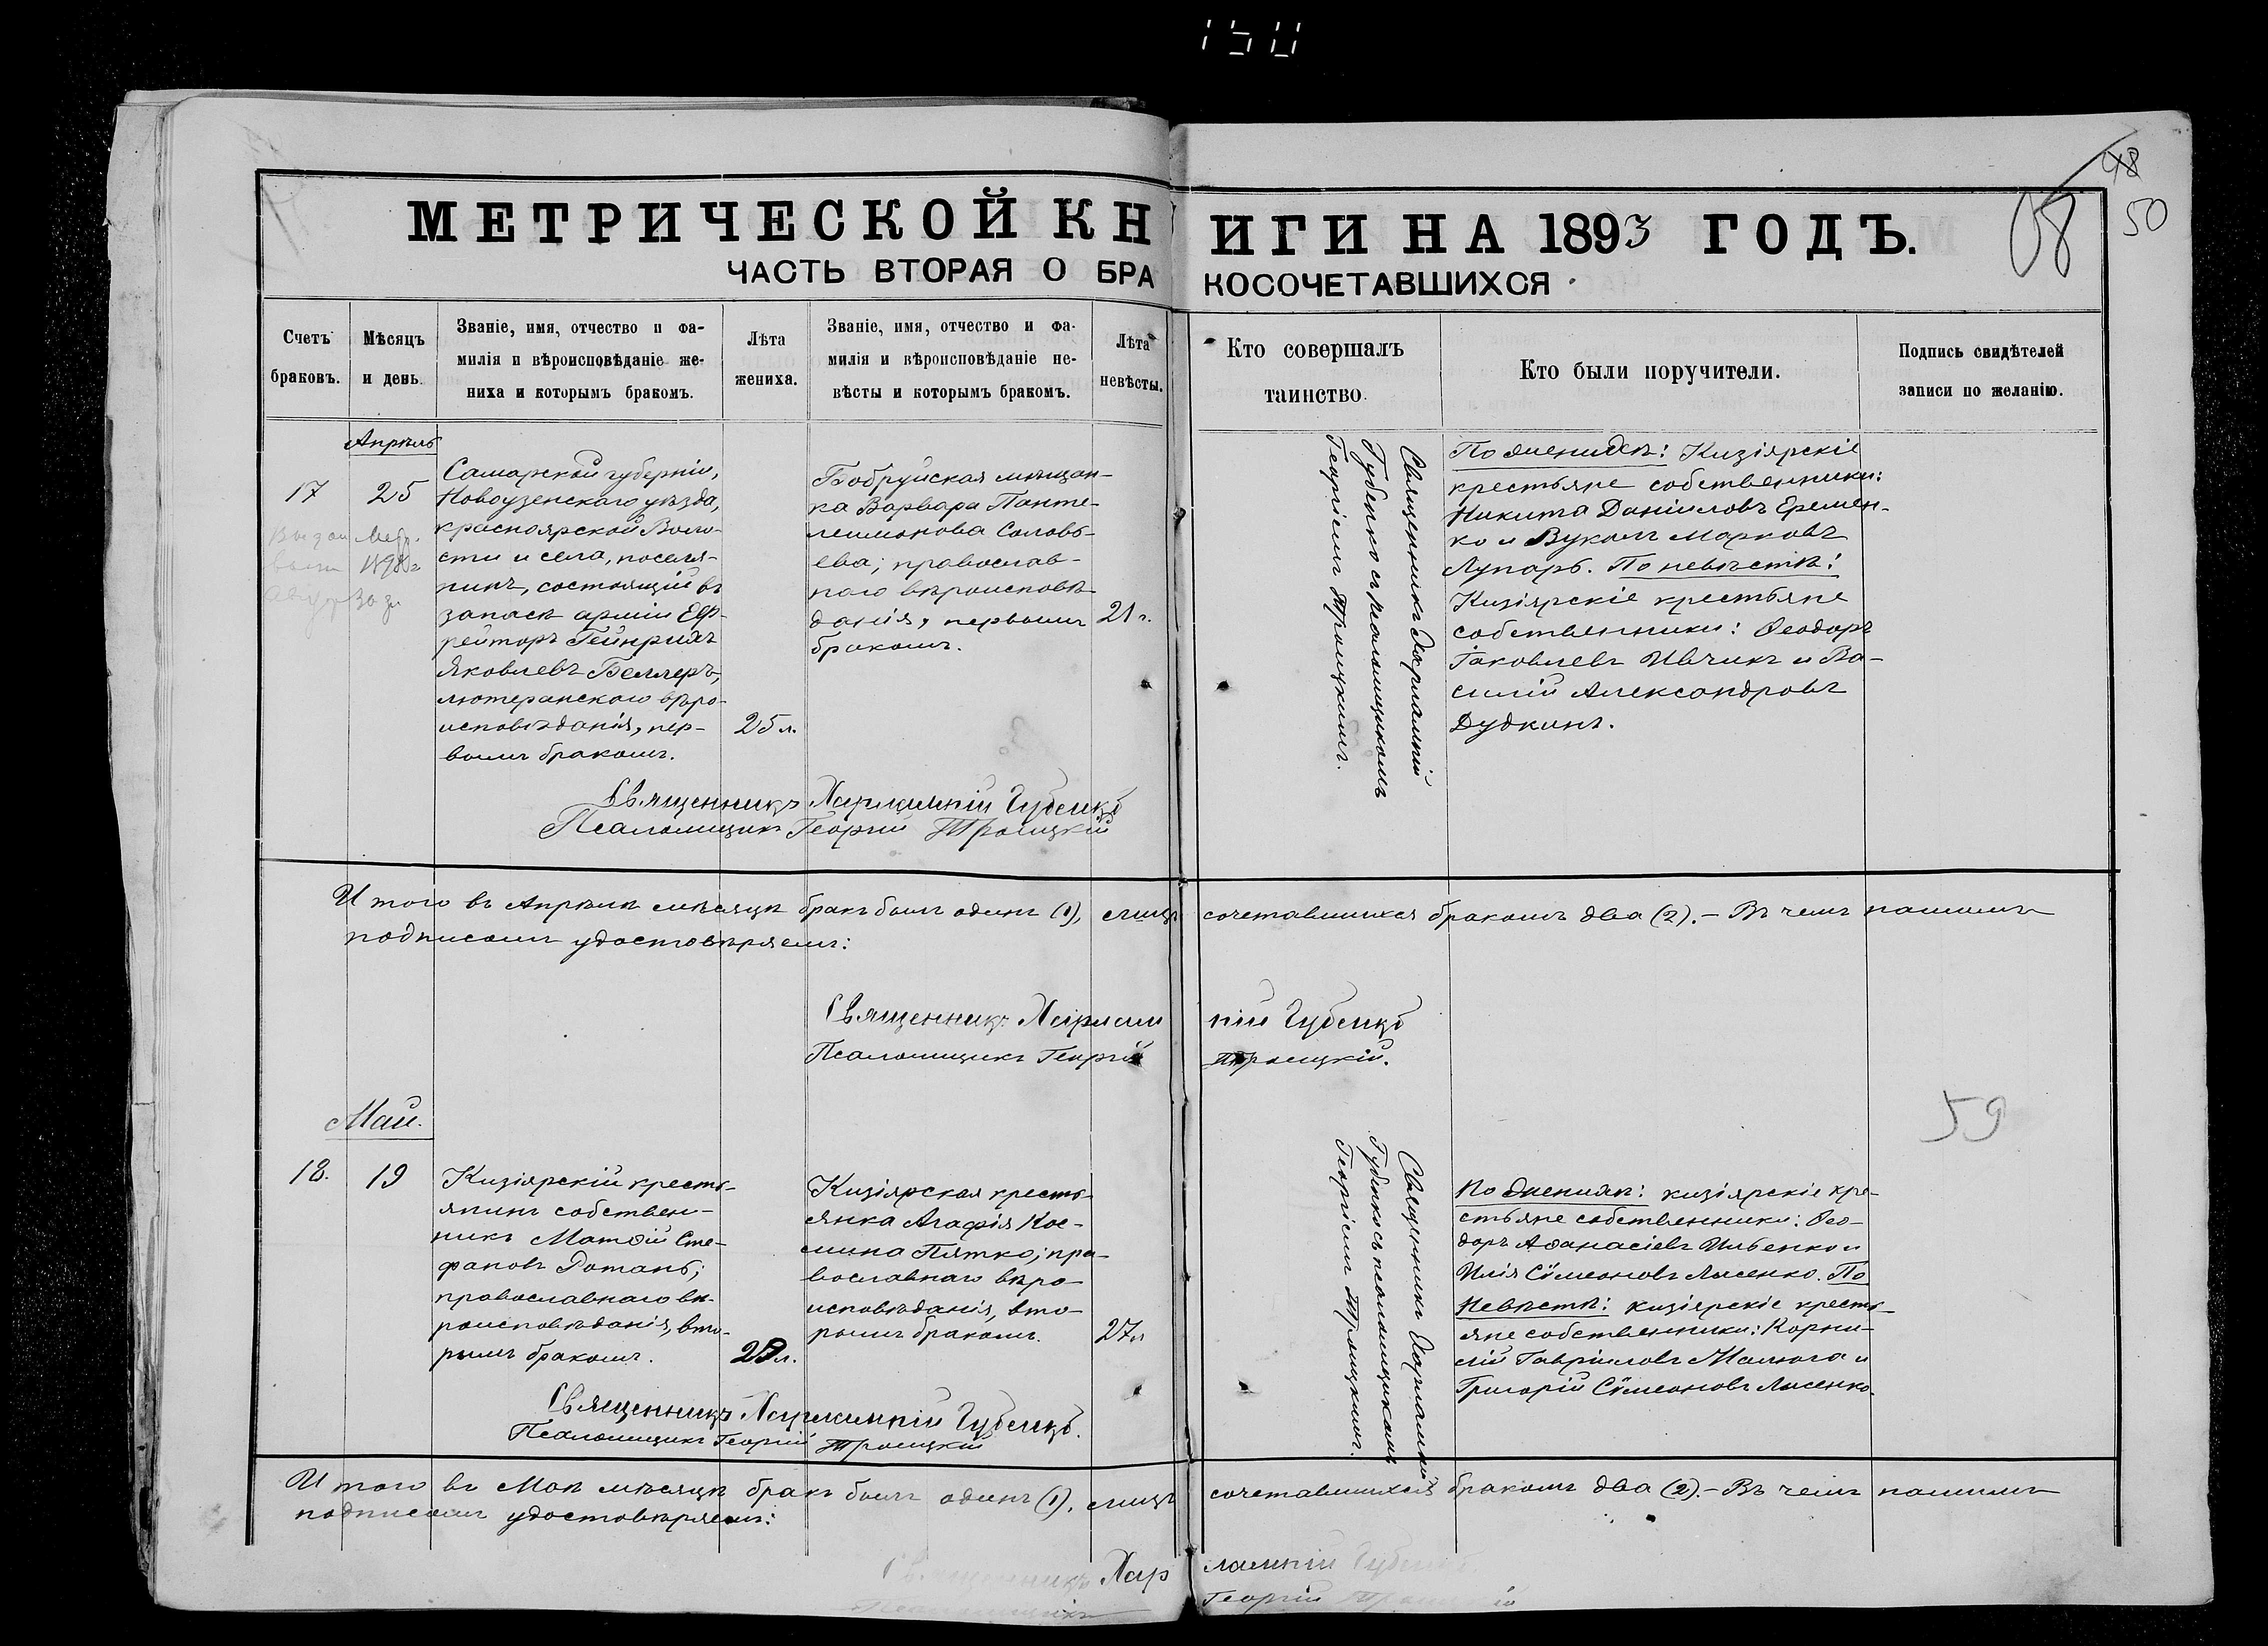 150
48
58
50
МЕТРИЧЕСКОЙ КНИГИ НА 1893 ГОДЪ.
ЧАСТЬ ВТОРАЯ О БРАКОСОЧЕТАВШИХСЯ.
Счетъ
браковъ.
Мѣсяцъ
и день.
Званіе, имя, отчество и фа-
милія и вѣроисповѣданіе же-
ниха и которымъ бракомъ.
Лѣта
жениха.
Званіе, имя, отчество и фа-
милія и вѣроисповѣданіе не-
вѣсты и которымъ бракомъ.
Лѣта
невѣсты.
Кто совершалъ
таинство.
Кто были поручители.
Подпись свидѣтелей
записи по желанію.
Апрѣль
17
25
Самарской губерніи,
Новоузенскаго уѣзда,
красноярской Воло-
сти и села, поселя-
нинъ, состоящій въ
запасѣ арміи Еф-
рейторъ Гейнрихъ
Яковлевъ Беллеръ,
лютеранскаго вѣро-
исповѣданія, пер-
вымъ бракомъ.
25 л.
Бобруйская мѣщан-
ка Варвара Панте-
леимонова Соловь-
ева; православ-
наго вѣроисповѣ-
данія, первымъ
бракомъ.
21 г.
Священникъ Харлампій
Губенко съ псаломщикомъ
Георгіемъ Троицкимъ.
По женихѣ: Кизіярскіе
крестьяне собственники:
Никита Даніиловъ Еремен-
ко и Вуколъ Марковъ
Лупарь. По невѣстѣ:
Кизіярскіе крестьяне
собственники: Ѳеодоръ
Іаковлевъ Ивчикъ и Ва-
силій Александровъ
Дудкинъ.
Священникъ Харлампій Губенко
Псаломщикъ Георгій Троицкій
Итого въ Апрѣлѣ мѣсяцѣ бракъ былъ одинъ (1), лицъ сочетавшихся бракомъ два (2). – Въ чемъ нашимъ
подписомъ удостовѣряемъ:
Священникъ Харлампій Губенко
Псаломщикъ Георгій Троицкій.
59
Май.
18.
19
Кизіярскій кресть-
янинъ собствен-
никъ Матѳій Сте-
фановъ Ротань;
православнаго вѣ-
роисповѣданія, вто-
рымъ бракомъ.
29 л.
Кизіярская кресть-
янка Агафія Кос-
мина Пятко; пра-
вославнаго вѣро-
исповѣданія, вто-
рымъ бракомъ.
27 л
Священникъ Харлампій
Губенко съ псаломщикомъ
Георгіемъ Троицкимъ.
По женихѣ: кизіярскіе кре-
стьяне собственники: Ѳео-
доръ Аѳанасіевъ Ильенко и
Илія Сѵмеоновъ Лысенко. По
невѣстѣ: кизіярскіе кресть-
яне собственники: Корни-
лій Гавріиловъ Малюга и
Григорій Сѵмеоновъ Лысенко.
Священникъ Харлампій Губенко.
Псаломщикъ Георгій Троицкій
Итого въ Маѣ мѣсяцѣ бракъ былъ одинъ (1), лицъ сочетавшихся бракомъ два (2). – Въ чемъ нашимъ
подписомъ удостовѣряемъ:
Священникъ Харлампій Губенко
Псаломщикъ Георгій Троицкій